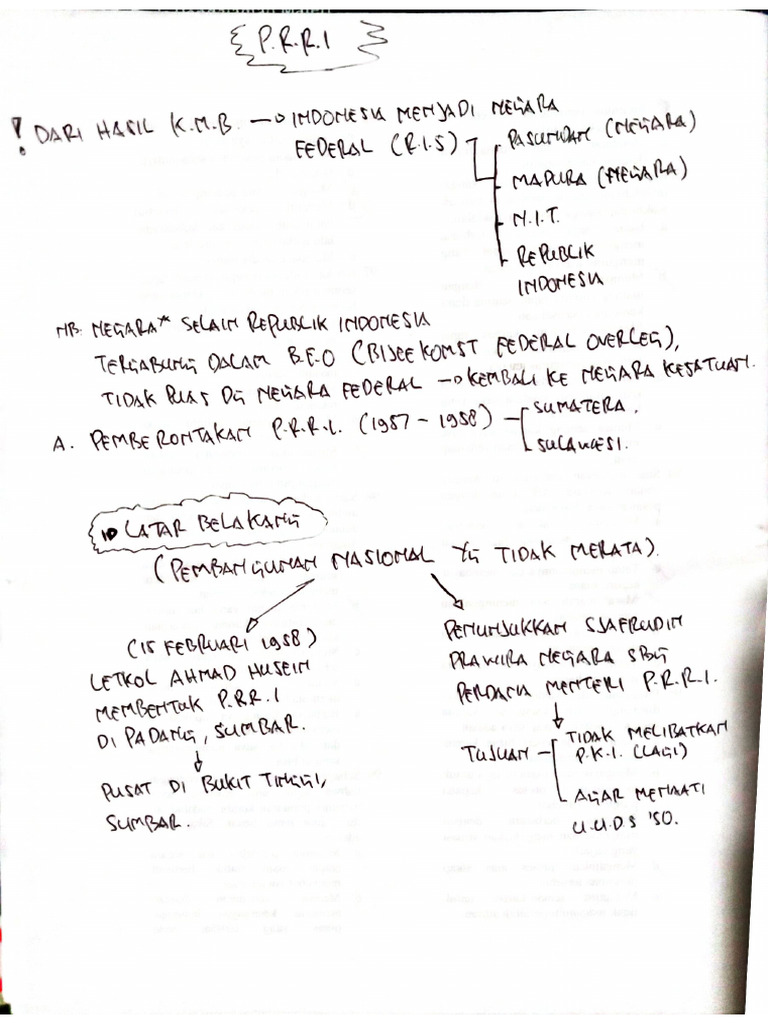 P.R.R.I
! DARI HASIL K.M.B. → INDONESIA MENJADI NEGARA
FEDERAL (R.I.S)
PASUNDAN (NEGARA)
MADURA (NEGARA)
N.I.T.
REPUBLIK
INDONESIA
NB: NEGARA* SELAIN REPUBLIK INDONESIA
TERGABUNG DALAM B.F.O (BIJEEKOMST FEDERAL OVERLEG),
TIDAK PUAS DG NEGARA FEDERAL → KEMBALI KE NEGARA KESATUAN.
A. PEMBERONTAKAN P.R.R.I. (1957 - 1958)
SUMATERA.
SULAWESI.
LATAR BELAKANG
(PEMBANGUNAN NASIONAL YG TIDAK MERATA).
(15 FEBRUARI 1958)
LETKOL AHMAD HUSEIN
MEMBENTUK P.R.R.I
DI PADANG, SUMBAR.
PUSAT DI BUKIT TINGGI,
SUMBAR.
PENUNJUKKAN SJAFRUDIN
PRAWIRA NEGARA SBG
PERDANA MENTERI P.R.R.I.
TUJUAN
TIDAK MELIBATKAN
P.K.I. (LAGI)
AGAR MENAATI
U.U.D.S '50.